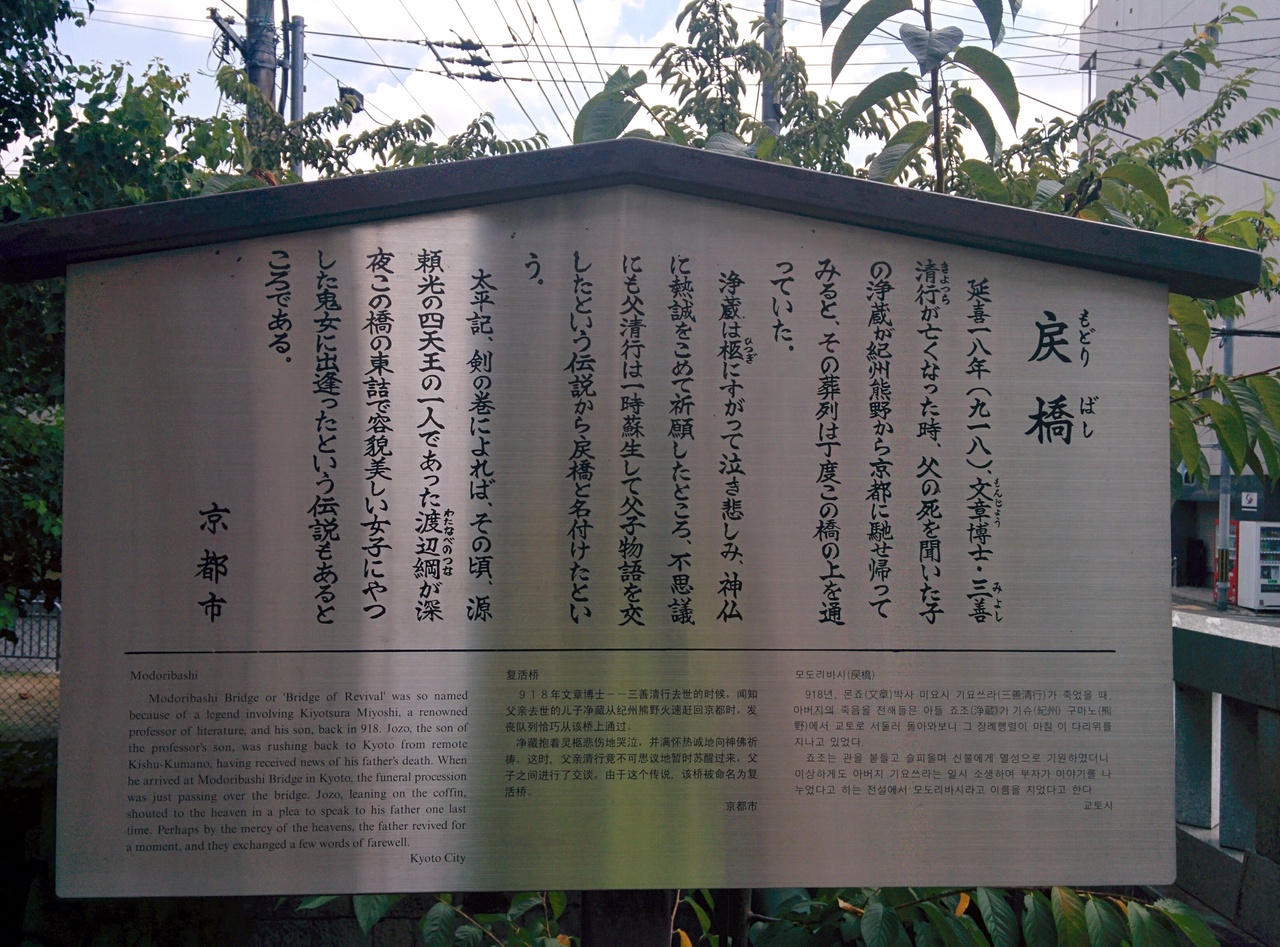 戻橋
もどりばし
延喜一八年（九一八）、文章博士・三善
もんじょう みよし
清行が亡くなった時、父の死を聞いた子
きよつら
の浄蔵が紀州熊野から京都に馳せ帰って
みると、その葬列は丁度この橋の上を通
っていた。
浄蔵は柩にすがって泣き悲しみ、神仏
ひつぎ
に熱誠をこめて祈願したところ、不思議
にも父清行は一時蘇生して父子物語を交
したという伝説から戻橋と名付けたとい
う。
太平記、剣の巻によれば、その頃、源
頼光の四天王の一人であった渡辺綱が深
わたなべのつな
夜この橋の東詰で容貌美しい女子にやつ
した鬼女に出逢ったという伝説もあると
ころである。
京都市
Modoribashi
Modoribashi Bridge or 'Bridge of Revival' was so named
because of a legend involving Kiyotsura Miyoshi, a renowned
professor of literature, and his son, back in 918. Jozo, the son of
the professor's son, was rushing back to Kyoto from remote
Kishu-Kumano, having received news of his father's death. When
he arrived at Modoribashi Bridge in Kyoto, the funeral procession
was just passing over the bridge. Jozo, leaning on the coffin,
shouted to the heaven in a plea to speak to his father one last
time. Perhaps by the mercy of the heavens, the father revived for
a moment, and they exchanged a few words of farewell.
Kyoto City
复活桥
918年文章博士－－三善清行去世的时候，闻知
父亲去世的儿子净藏从纪州熊野火速赶回京都时，发
丧队列恰巧从该桥上通过。
净藏抱着灵柩悲伤地哭泣，并满怀热诚地向神佛祈
祷，这时，父亲清行竟不可思议地暂时苏醒过来，父
子之间进行了交谈，由于这个传说，该桥被命名为复
活桥。
京都市
모도리바시(戻橋)
918년, 몬죠(文章)박사 미요시 기요쓰라(三善清行)가 죽었을 때,
아버지의 죽음을 전해들은 아들 죠조(浄蔵)가 기슈(紀州) 구마노(熊
野)에서 교토로 서둘러 돌아와보니 그 장례행렬이 마침 이 다리위를
지나고 있었다.
죠조는 관을 붙들고 슬피울며 신불에게 열성으로 기원하였더니
이상하게도 아버지 기요쓰라는 일시 소생하여 부자가 이야기를 나
누었다고 하는 전설에서 모도리바시라고 이름을 지었다고 한다.
교토시